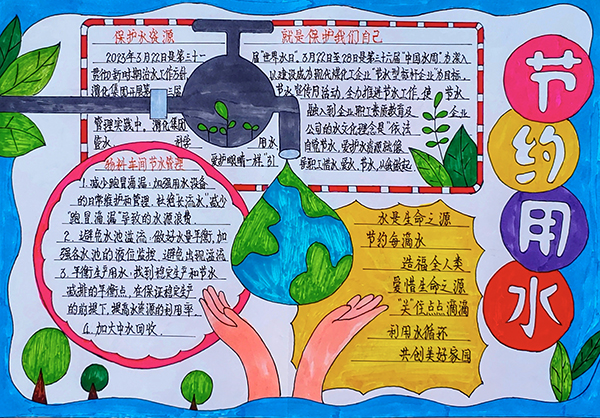 保护水资源
2023年3月22日是第三十一
贯彻新时期治水工作方针
渭化集团
管理实践中，渭化集团
管水、科学用水、
爱护眼睛一样"引
就是保护我们自己
届"世界水日"。3月22日至28日是第三十六届"中国水周"。为深入
以建设成为现代煤化工企业"节水型标杆企业"为目标，
节水宣传月活动，全力推进节水工作，使节水
融入到企业职工素质教育及企业
公司的水文化理念是"依法
自觉节水，爱护水资源就像
导职工惜水、爱水、节水，从我做起
物料车间节水管理
1.减少跑冒滴漏：加强用水设备
的日常维护和管理，杜绝长流水，减少
"跑冒滴漏"导致的水源浪费
2.避免水池溢流：做好水量平衡，加
强各水池的液位监控，避免出现溢流
3.平衡生产用水：找到稳定生产和节水
减排的平衡点，在保证稳定生产
的前提下，提高水资源的利用率。
4.加大中水回收。
水是生命之源
节约每滴水
造福全人类
爱惜生命之源
"关"住点点滴滴
利用水循环
共创美好家园
节约用水